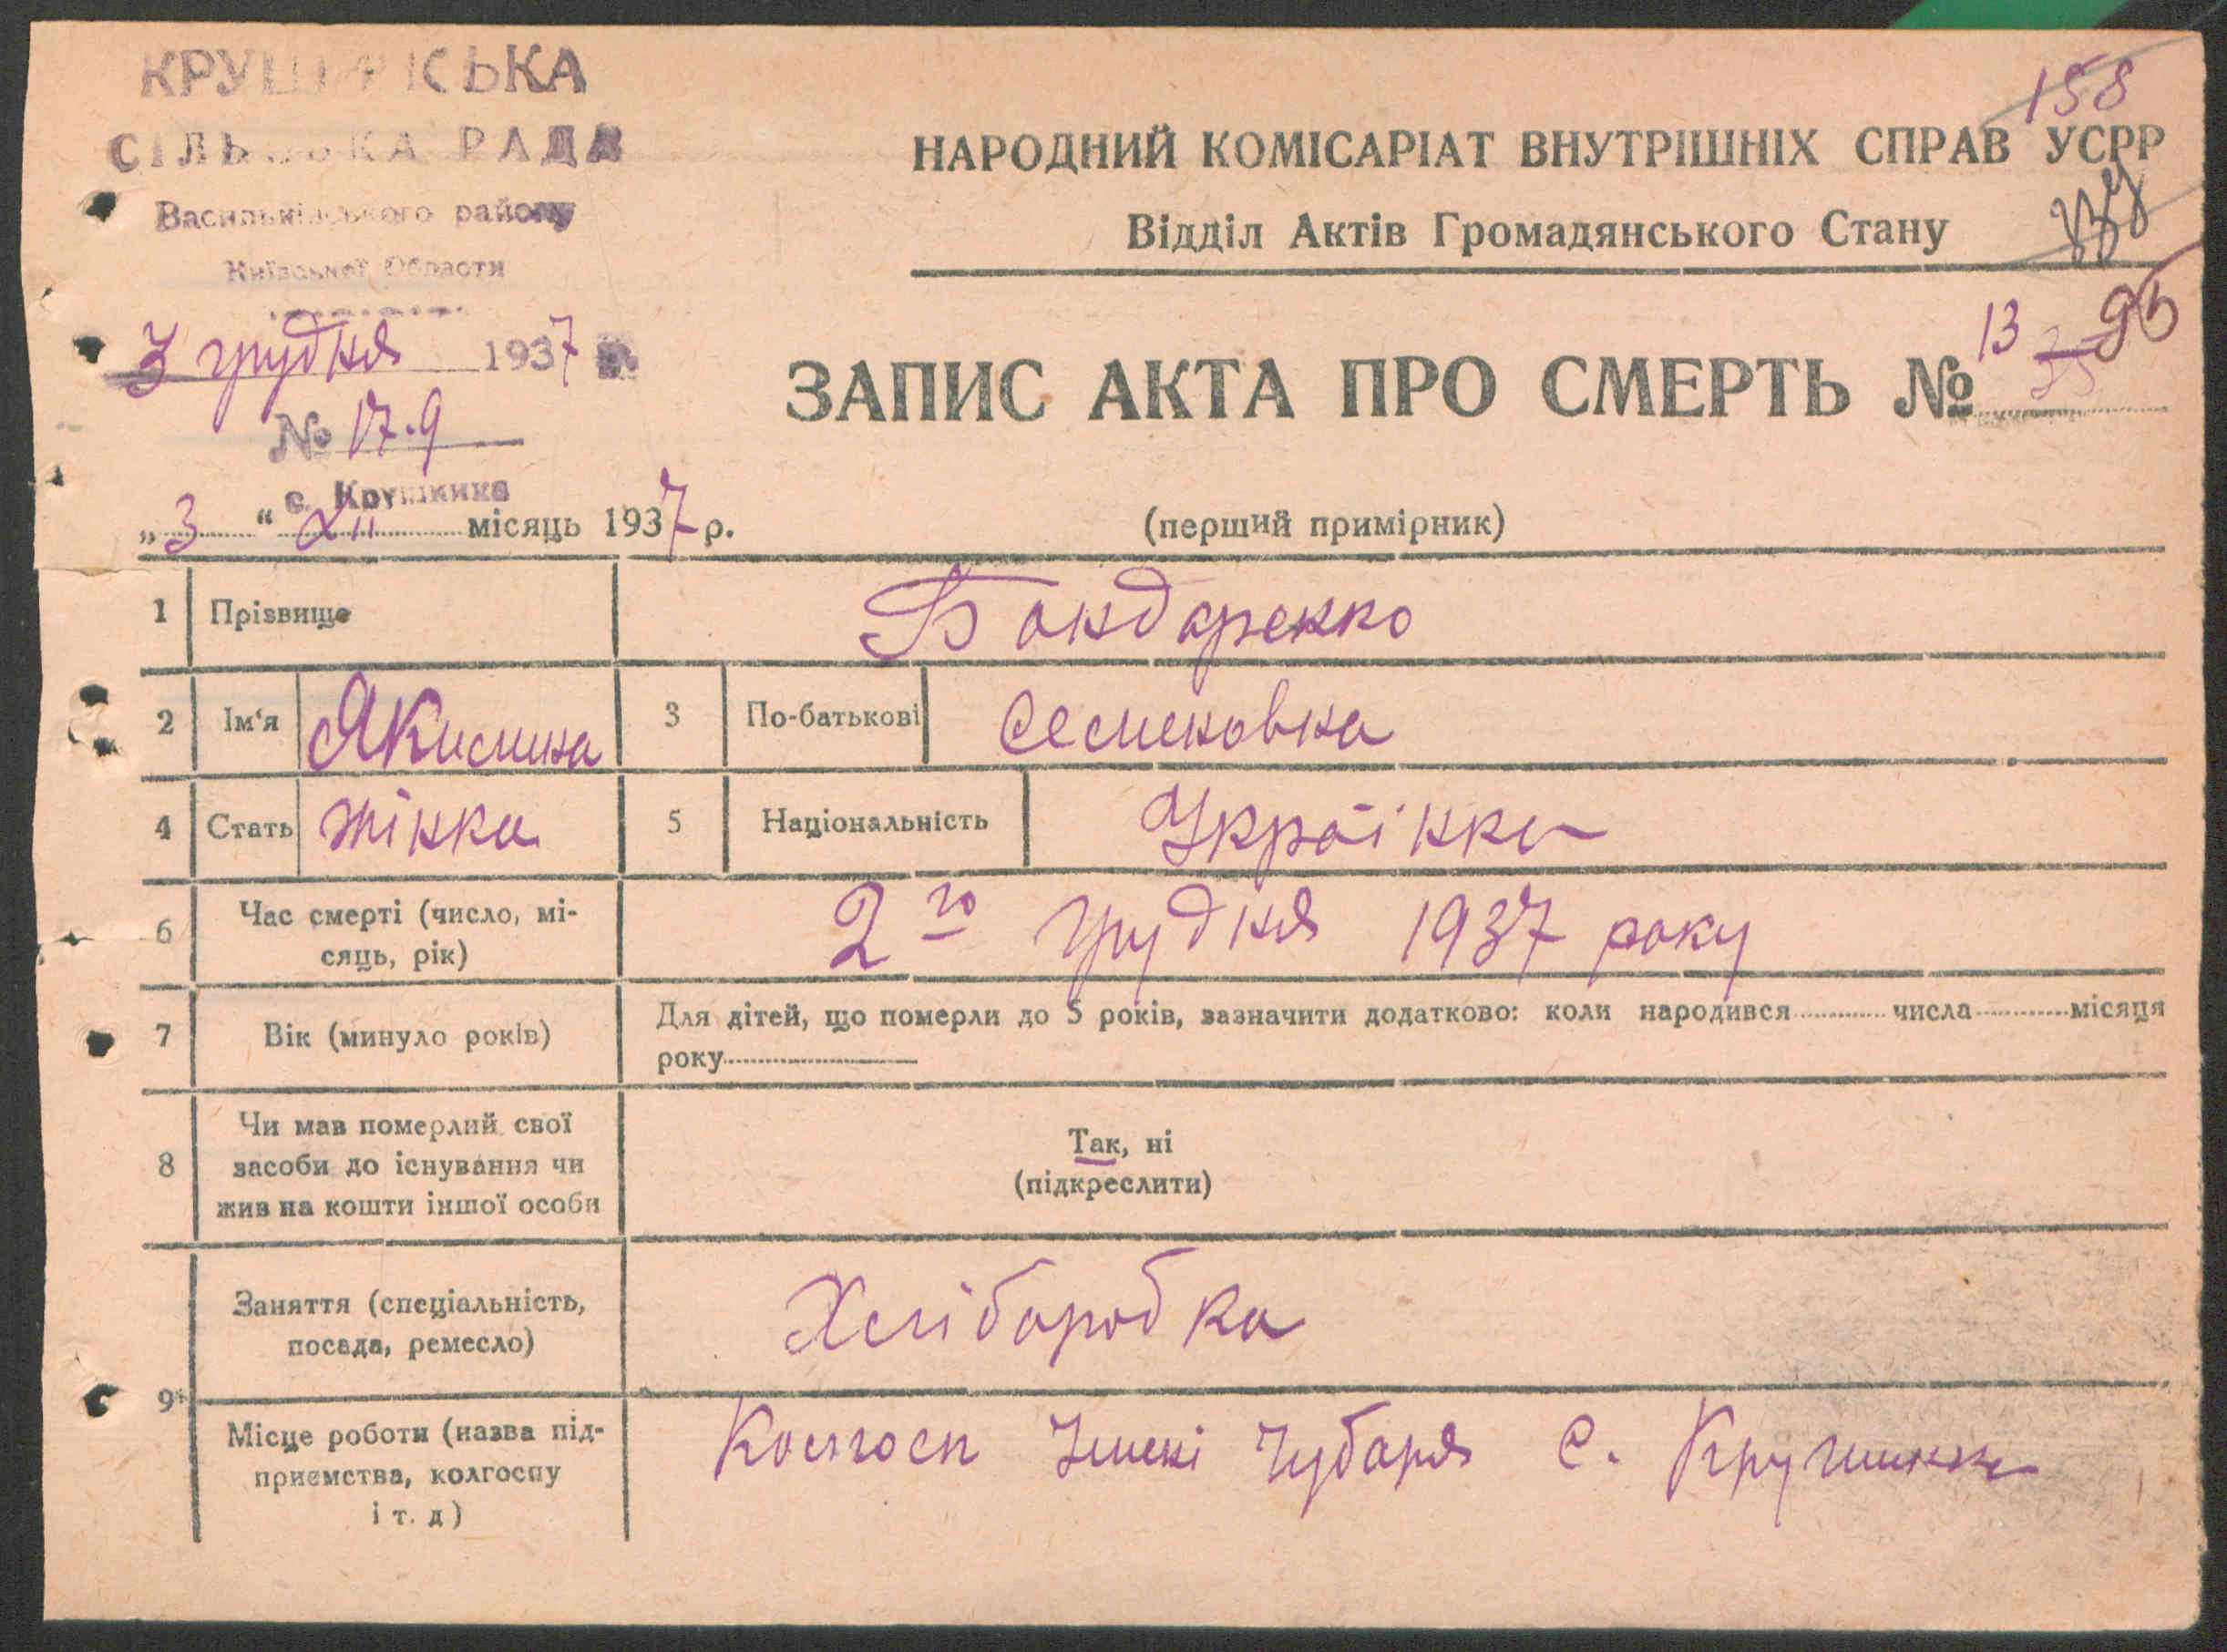 СІЛЬСЬКА РАДА
Васильківського району
Київської Области
3 грудня 1937 р.
№ 17.9
с. Крушинка
158
НАРОДНИЙ КОМІСАРІАТ ВНУТРІШНІХ СПРАВ УСРР
Відділ Актів Громадянського Стану
ЗАПИС АКТА ПРО СМЕРТЬ № 13 95
„3“ XII місяць 1937 р.
(перший примірник)
1 Прізвище Бондаренко
2 Ім‘я Якилина 3 По-батькові Семеновна
4 Стать жінка 5 Національність Українка
6 Час смерті (число, мі-
сяць, рік) 2го грудня 1937 року
7 Вік (минуло років) Для дітей, що померли до 5 років, зазначити додатково: коли народився числа місяця
року
8 Чи мав померлий свої
засоби до існування чи
жив на кошти іншої особи
Так, ні
(підкреслити)
9 Заняття (спеціальність,
посада, ремесло) Хліборобка
Місце роботи (назва під-
приємства, колгоспу
і т. д) Колгосп Імені Чубаря с. Крушинки